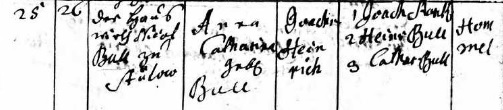 25 26
der Haus
wirth Nicol
Bull zu
Stülow
Anna
Catharina
geb.
Bull
Joachim
Hein
rich
Joach
2 Heinr Bull
3 Cathar Bull
Hom
mel